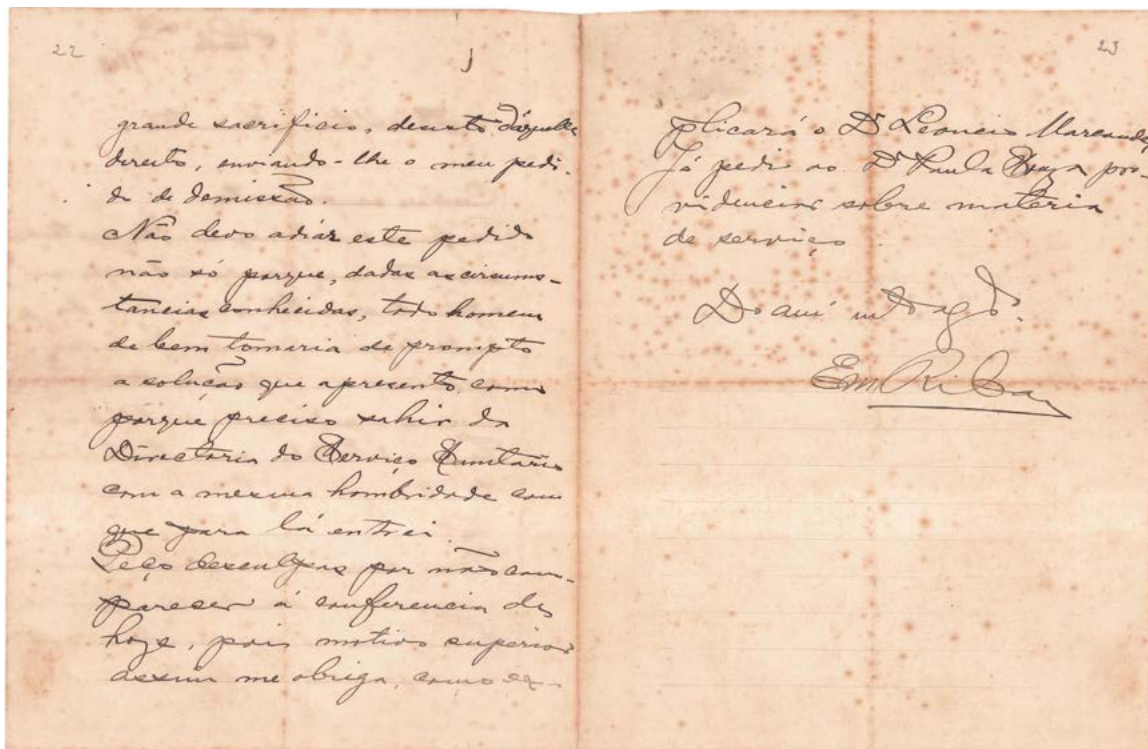 22
grande sacrificio, desisto d'aquelle
direito, enviando-lhe o meu pedi-
do de demissão.
Não devo adiar este pedido
não só porque, dadas as circums-
tancias conhecidas, todo homem
de bem tomaria de prompto
a solução que apresento, como
porque preciso sahir da
Directoria do Serviço Sanitario
com a mesma hombridade com
que para lá entrei.
Peço desculpas por não com-
parecer á conferencia de
hoje, pois motivo superior
assim me obriga, como ex-
23
plicará o Dr Leoncio Marcondes
Já pedi ao Dr Paula Souza pro-
videnciar sobre materia
de serviço.
Do am
Em Ribas